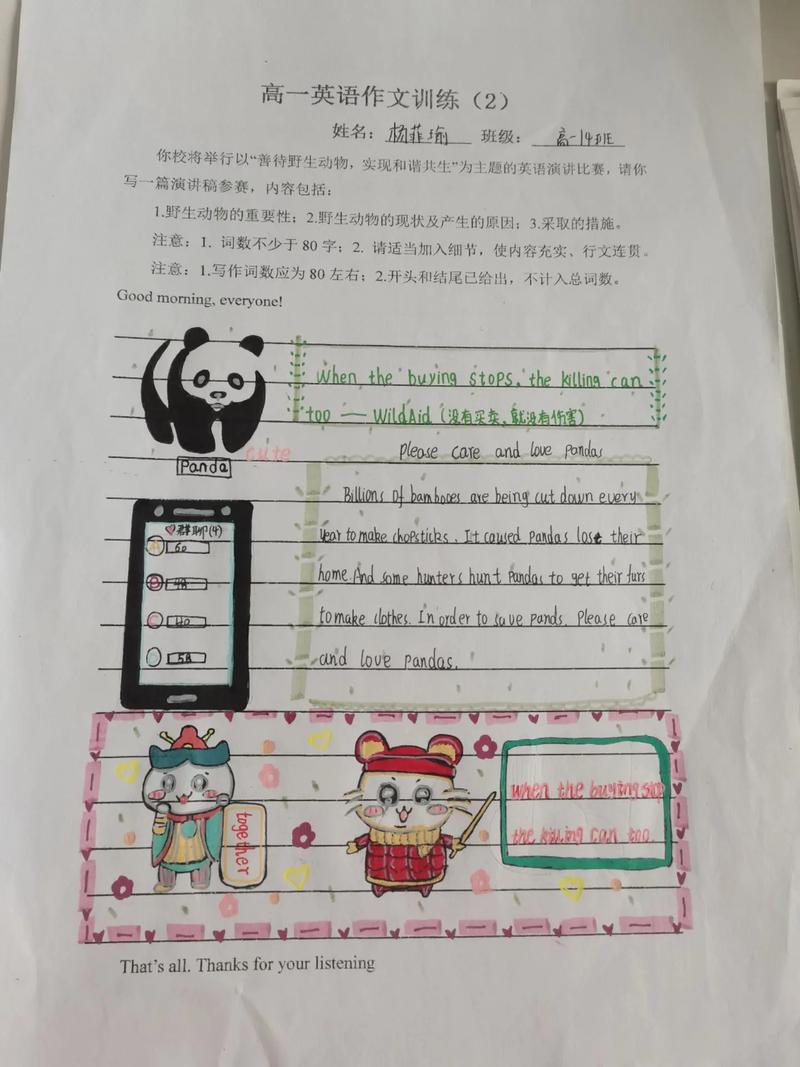 高一英语作文训练（2）
姓名：杨菲瑜 班级：高一14班
你校将举行以“善待野生动物，实现和谐共生”为主题的英语演讲比赛，请你
写一篇演讲稿参赛，内容包括：
1.野生动物的重要性；2.野生动物的现状及产生的原因；3.采取的措施。
注意：1. 词数不少于 80 字；2. 请适当加入细节，使内容充实、行文连贯。
注意：1.写作词数应为 80 左右；2.开头和结尾已给出，不计入总词数。
Good morning, everyone!
When the buying stops, the killing can
too — WildAid (没有买卖，就没有伤害)
cute
Panda
Please care and love pandas
Billions of bambooes are being cut down every
year to make chopsticks. It caused pandas lose their
home. And some hunters hunt pandas to get their furs
to make clothes. In order to save pands. Please care
and love pandas.
群聊(4)
A 60
B
C 40
together
When the buying stop
the killing can too.
That's all. Thanks for your listening